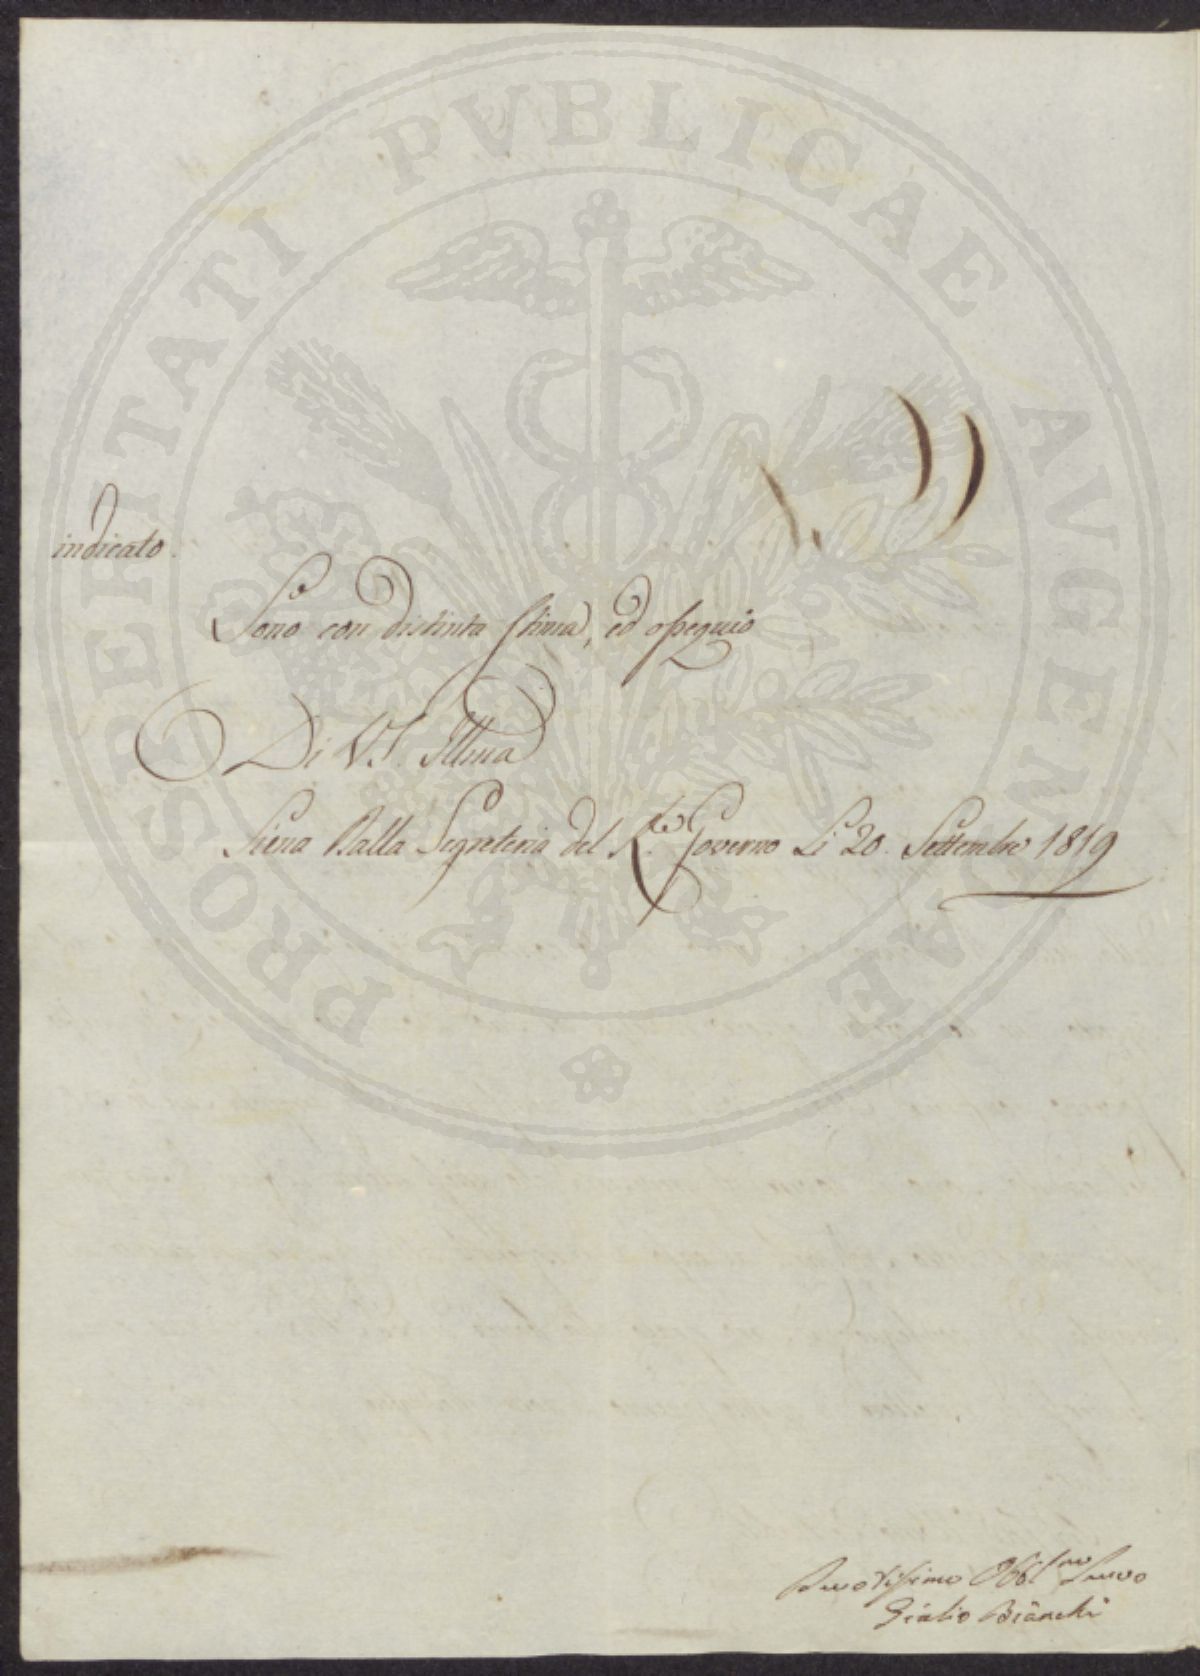 PROSPERITATI PVBLICAE AVGENDAE
indicato.
Sono con distinta stima, ed ossequio
Di V.S. Illma
Siena Dalla Segreteria del R. Governo Li 20. Settembre 1819
Devotissimo Obblmo Servo
Giulio Bianchi